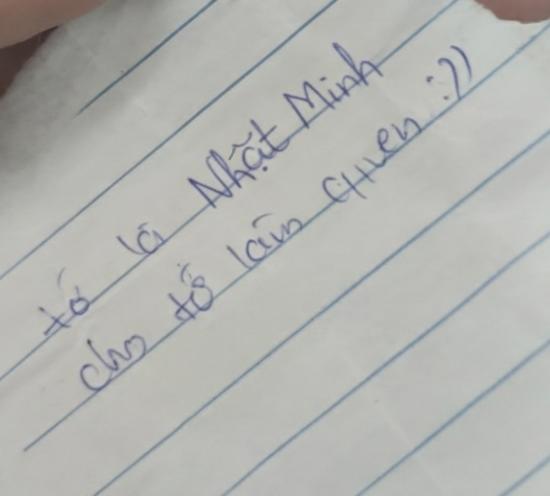 tớ là Nhật Minh
cho tớ làm quen :))